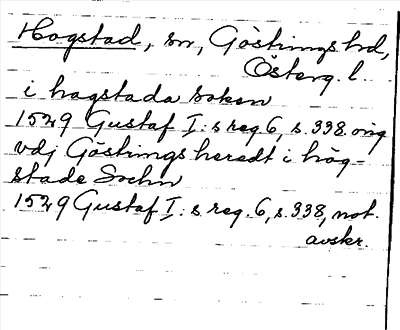 Hogstad, sn, Göstrings hd,
Österg. l.
i hagstada soken
1529 Gustaf I:s reg 6, s. 338. orig
vdj Göstrings heredt i hög-
stade Sochn
1529 Gustaf I:s reg. 6, s. 338, not.
avskr.